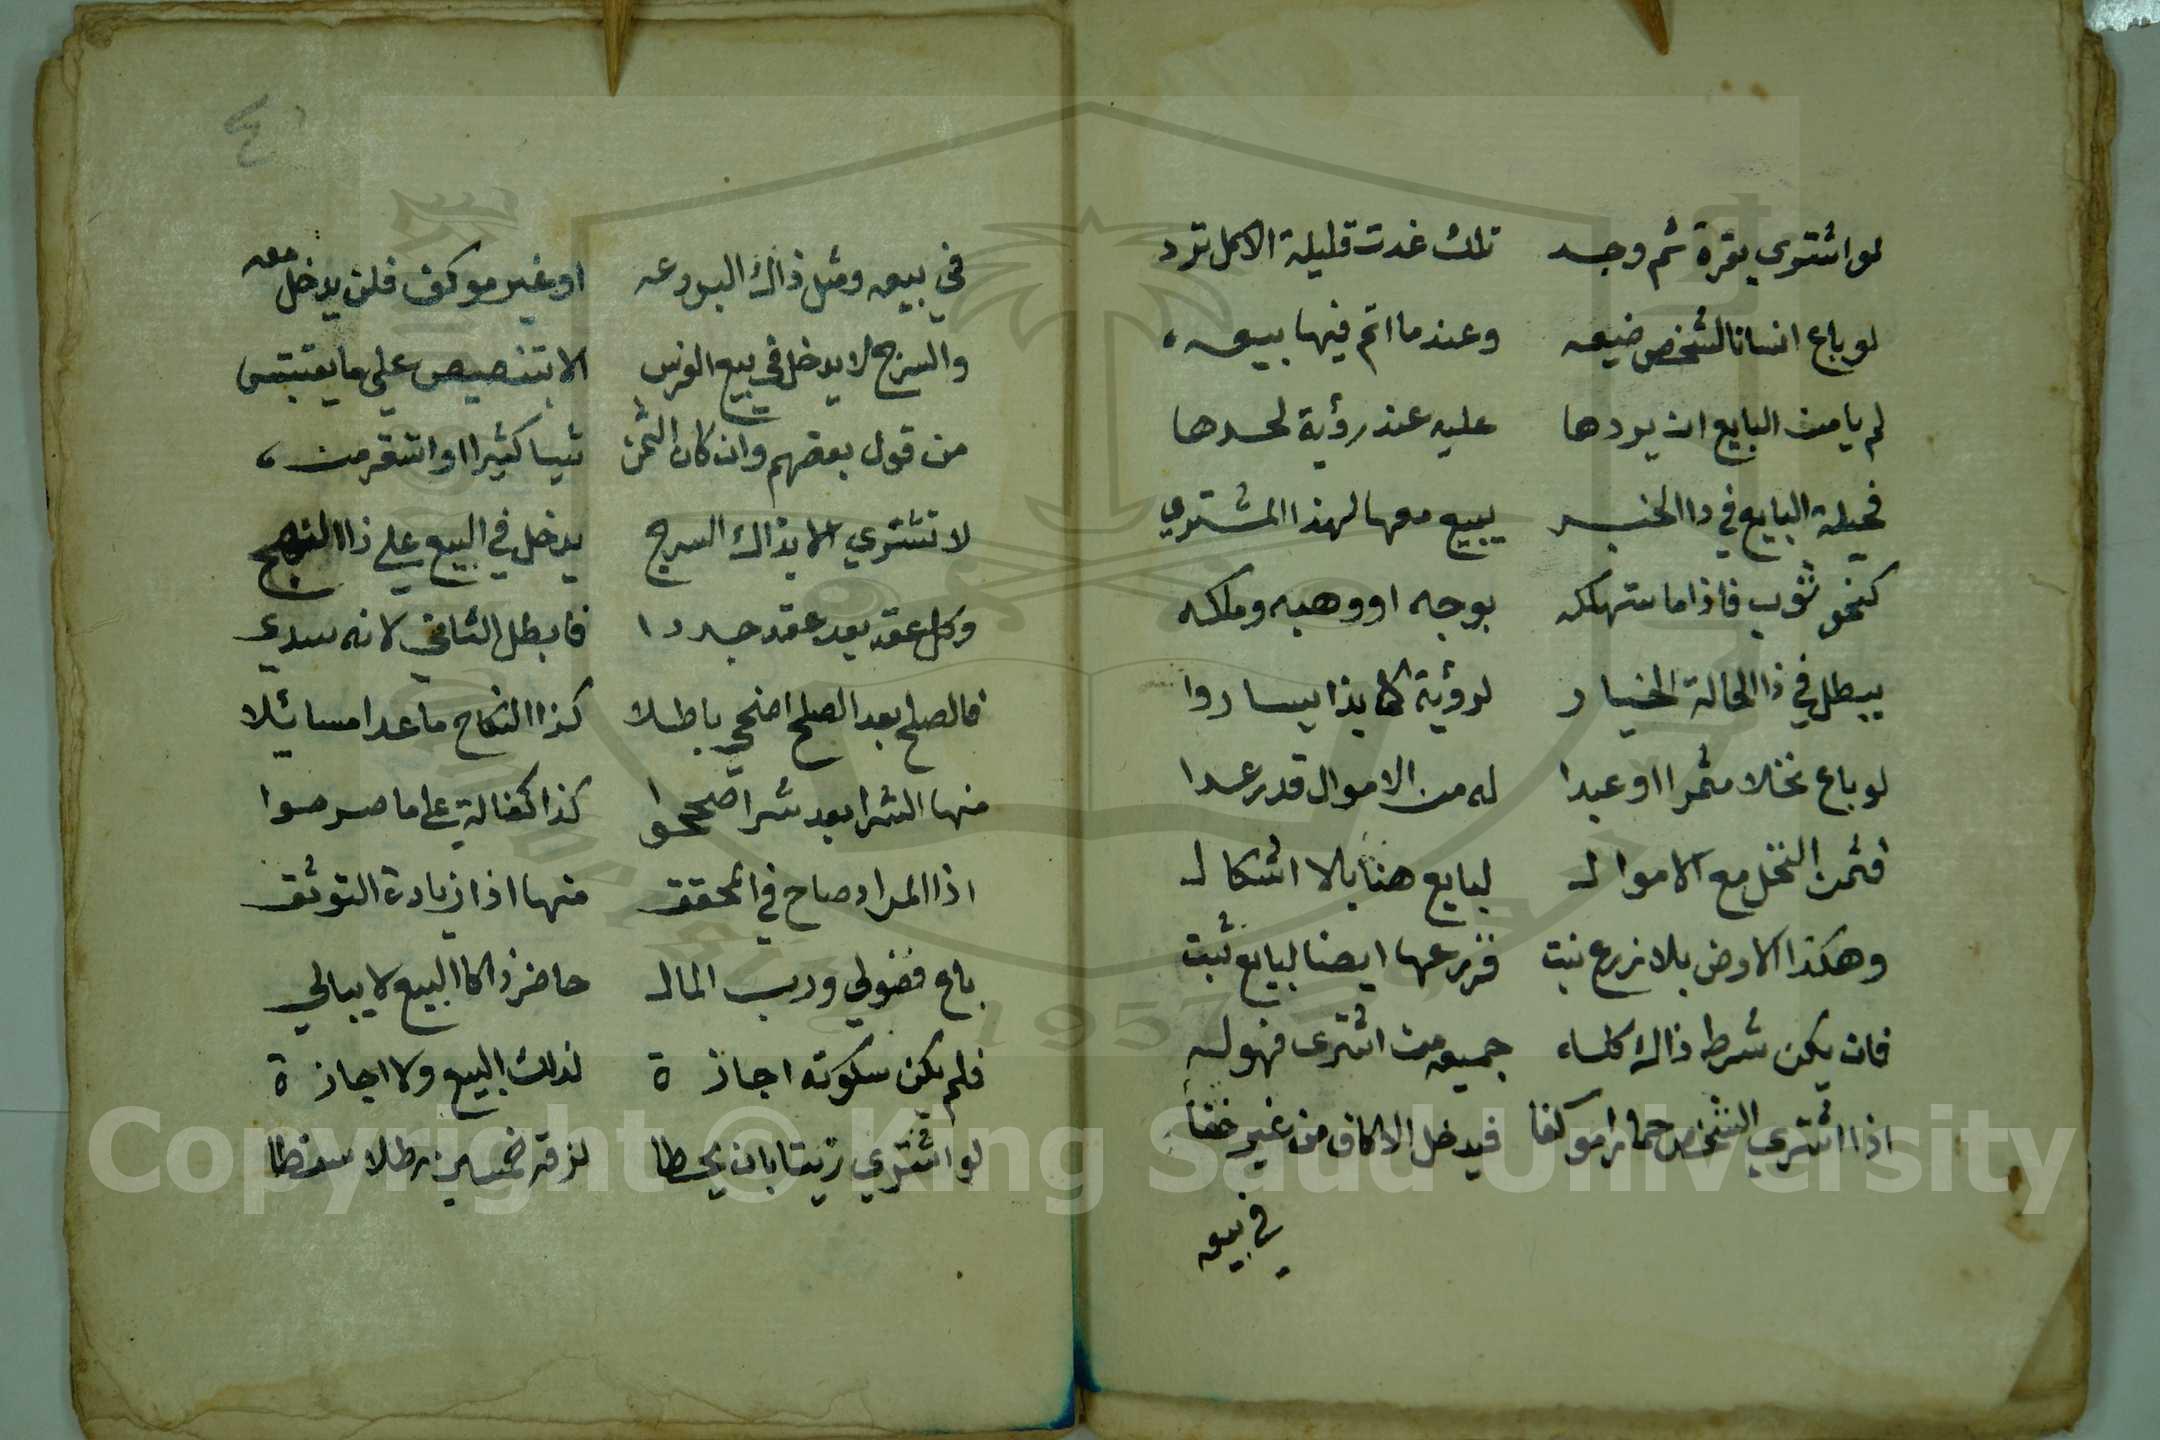 لو اشتري بقرة ثم وجد تلك غدت قليلة الاكل ترد
لو باع انسانا لشخص ضيعه وعند ما اتم فيها بيعه
لم يامن البايع ان يردها عليه عند رؤية لحدها
فحيلة البايع في دا الخبر يبيع معها لهذا المشتري
كنحو ثوب فاذا ما ستهلكه بوجه او وهبه وملكه
يبطل في ذا الحالة الخيار لرؤية
لو باع نخلا مثمرا او عبدا له من الاموال قدر عدا
فثمن النخل مع الاموال لبايع هنا بلا اشكال
وهكذا الارض بلا زرع نبت فزرعها ايضا لبايع ثبت
فان يكن شرط ذاك كله جميعه من اشترى فهو له
اذا اشتري الشخص حمارا موكفا فيدخل الاكاف من غير خفا
في بيعه
٤٠
في بيعه ومثل ذاك البردعه او غير موكف فلن يدخل معه
والسرج لا يدخل في بيع الفرس الا بتنصيص علي ما يقتبس
من قول بعضهم وان كان الثمن شيا كثيرا او اتت قرمن
لا تشتري الا بذاك السرج يدخل في البيع علي ذا النهج
وكل عقد بعد عقد جددا فابطل الثاني لانه سدي
فالصلح بعد الصلح اضحي باطلا كذا النكاح ما عدا مسائلا
منها الشرا بعد شرا صححوا كذا كفالة على ما صرحوا
اذا المراد صاح في المحقق منها اذا زيادة التوثق
باع فضولي ورب المال حاضر ذاكا البيع لا يبالي
فلم يكن سكوته اجازة لذلك البيع ولا اجازة
لو اشتري زيتا بان يحطا لزقه خمسين رطلا